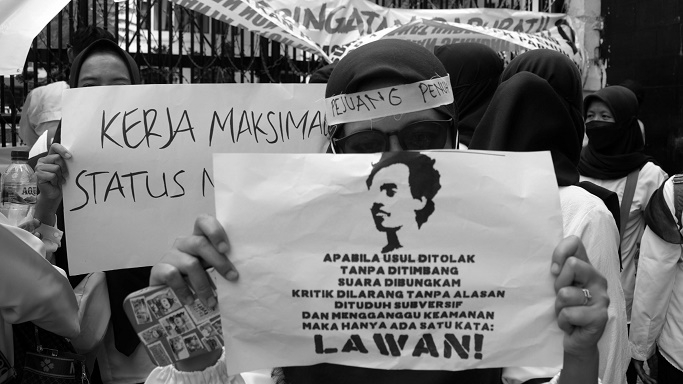 KERJA MAKSIMAL
STATUS
PEJUANG
APABILA USUL DITOLAK
TANPA DITIMBANG
SUARA DIBUNGKAM
KRITIK DILARANG TANPA ALASAN
DITUDUH SUBVERSIF
DAN MENGGANGGU KEAMANAN
MAKA HANYA ADA SATU KATA:
LAWAN!